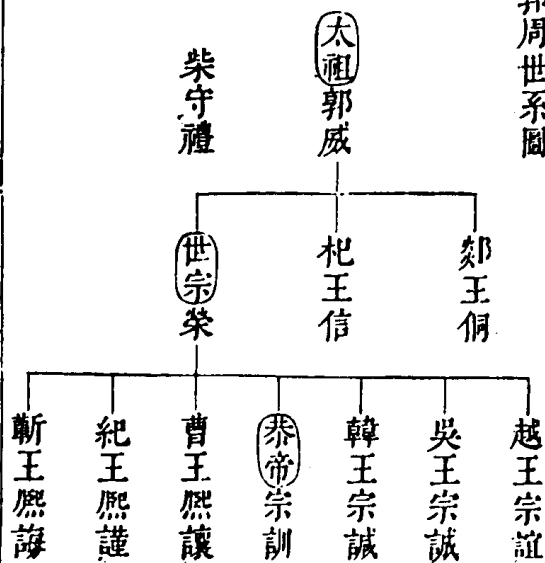 周世系圖
太祖郭威
柴守禮
郯王侗
杞王信
世宗榮
越王宗誼
吳王宗誠
韓王宗誠
恭帝宗訓
曹王熈讓
紀王熈謹
蘄王熈誨